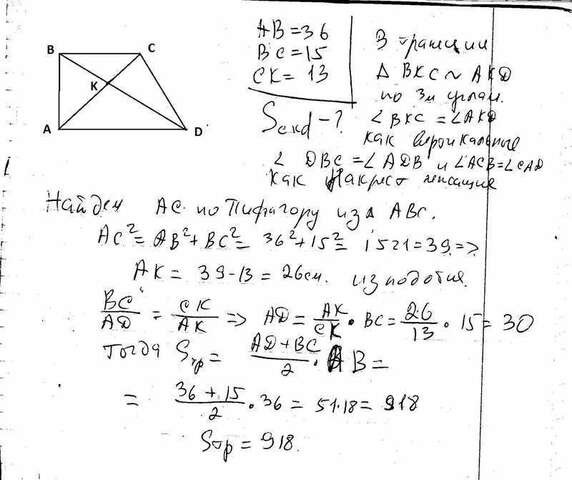 B
C
K
A
D
AB=36
BC=15
CK=13
Scкd-?
В трапеции
Δ BKC ~ AKD
по 3м углам.
∠BKC=∠AKD
как вертикальные
∠ DBC=∠ADB и ∠ACB=∠CAD
как накрест лежащие
Найдем AC по Пифагору из Δ ABC.
AC²=AB²+BC²=36²+15²=1521=39=>
AK= 39-13=26см. из подобия.
BC/AD = CK/AK => AD= AK/CK · BC= 26/13 · 15=30
тогда Sтр= AD+BC/2 · AB=
= 36+15/2 · 36=51·18=918
Sтр=918.